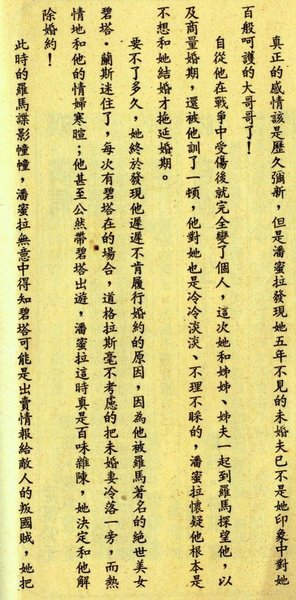 真正的感情該是歷久彌新，但是潘蜜拉發現她五年不見的未婚夫已不是她印象中對她
百般呵護的大哥哥了！
自從他在戰爭中受傷後就完全變了個人，這次她和姊姊、姊夫一起到羅馬探望他，以
及商量婚期，還被他訓了一頓，他對她也是冷冷淡淡、不理不睬的，潘蜜拉懷疑他根本是
不想和她結婚才拖延婚期。
要不了多久，她終於發現他遲遲不肯履行婚約的原因，因為他被羅馬著名的絕世美女
碧塔·蘭斯迷住了，每次有碧塔在的場合，道格拉斯毫不考慮的把未婚妻冷落一旁，而熱
情地和他的情婦寒暄；他甚至公然帶碧塔出遊，潘蜜拉這時真是百味雜陳，她決定和他解
除婚約！
此時的羅馬諜影幢幢，潘蜜拉無意中得知碧塔可能是出賣情報給敵人的叛國賊，她把